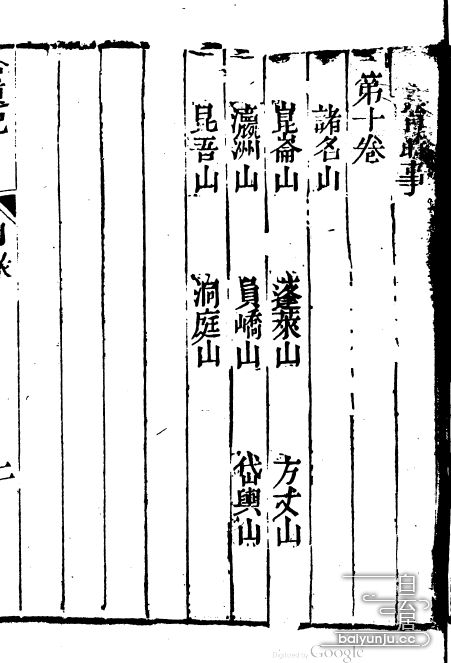 晉時事
第十卷
諸名山
崑崙山 蓬萊山 方丈山
瀛洲山 員嶠山 岱輿山
昆吾山 洞庭山
白云居
baiyunju.cc
Digitized by Google